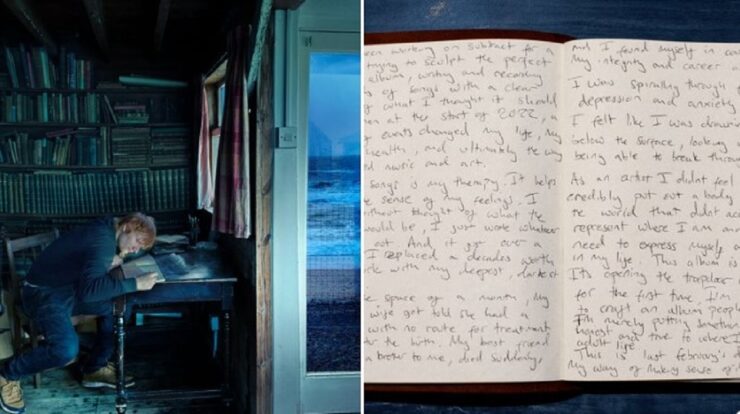 been writing on subtract for a
trying to sculpt the perfect
album, writing and recording
of songs with a clear
of what I thought it should
en at the start of 2022, a
of events changed my life, my
health, and ultimately the way
ed music and art.
songs is my therapy. It helps
e sense of my feelings. I
ithout thought of what the
would be, I just wrote whatever
out. And it just over a
I replaced a decades worth
rk with my deepest, darkest
e space of a month, my
wife got told she had a
with no route for treatment
ter the birth. My best friend
a brother to me, died suddenly,
and I found myself in
my integrity and career
I was spiralling through
depression and anxiety
I felt like I was drowning
below the surface, looking
being able to break through
As an artist I didnt feel
credibly put out a body
te world that didnt
represent where I am and
need to express myself
in my life. This album is
Its opening the trapdoor
for the first time, I'm
to craft an album people
I'm merely putting something
honest and true to where I
adult life
This is last february's
my way of making sense of